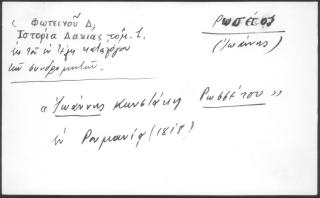 ( Φωτεινοῦ Δ,
Ἱστορία Δακίας τόμ. 1.
ἐν τῷ ἐν τέλει καταλόγῳ
τῶν συνδρομητῶν.
Ρωσέτος
(Ἰωάννης)
« Ἰωάννης Κωνστάκη Ρωσσέτου »
ἐν Ρουμανίᾳ (1818)